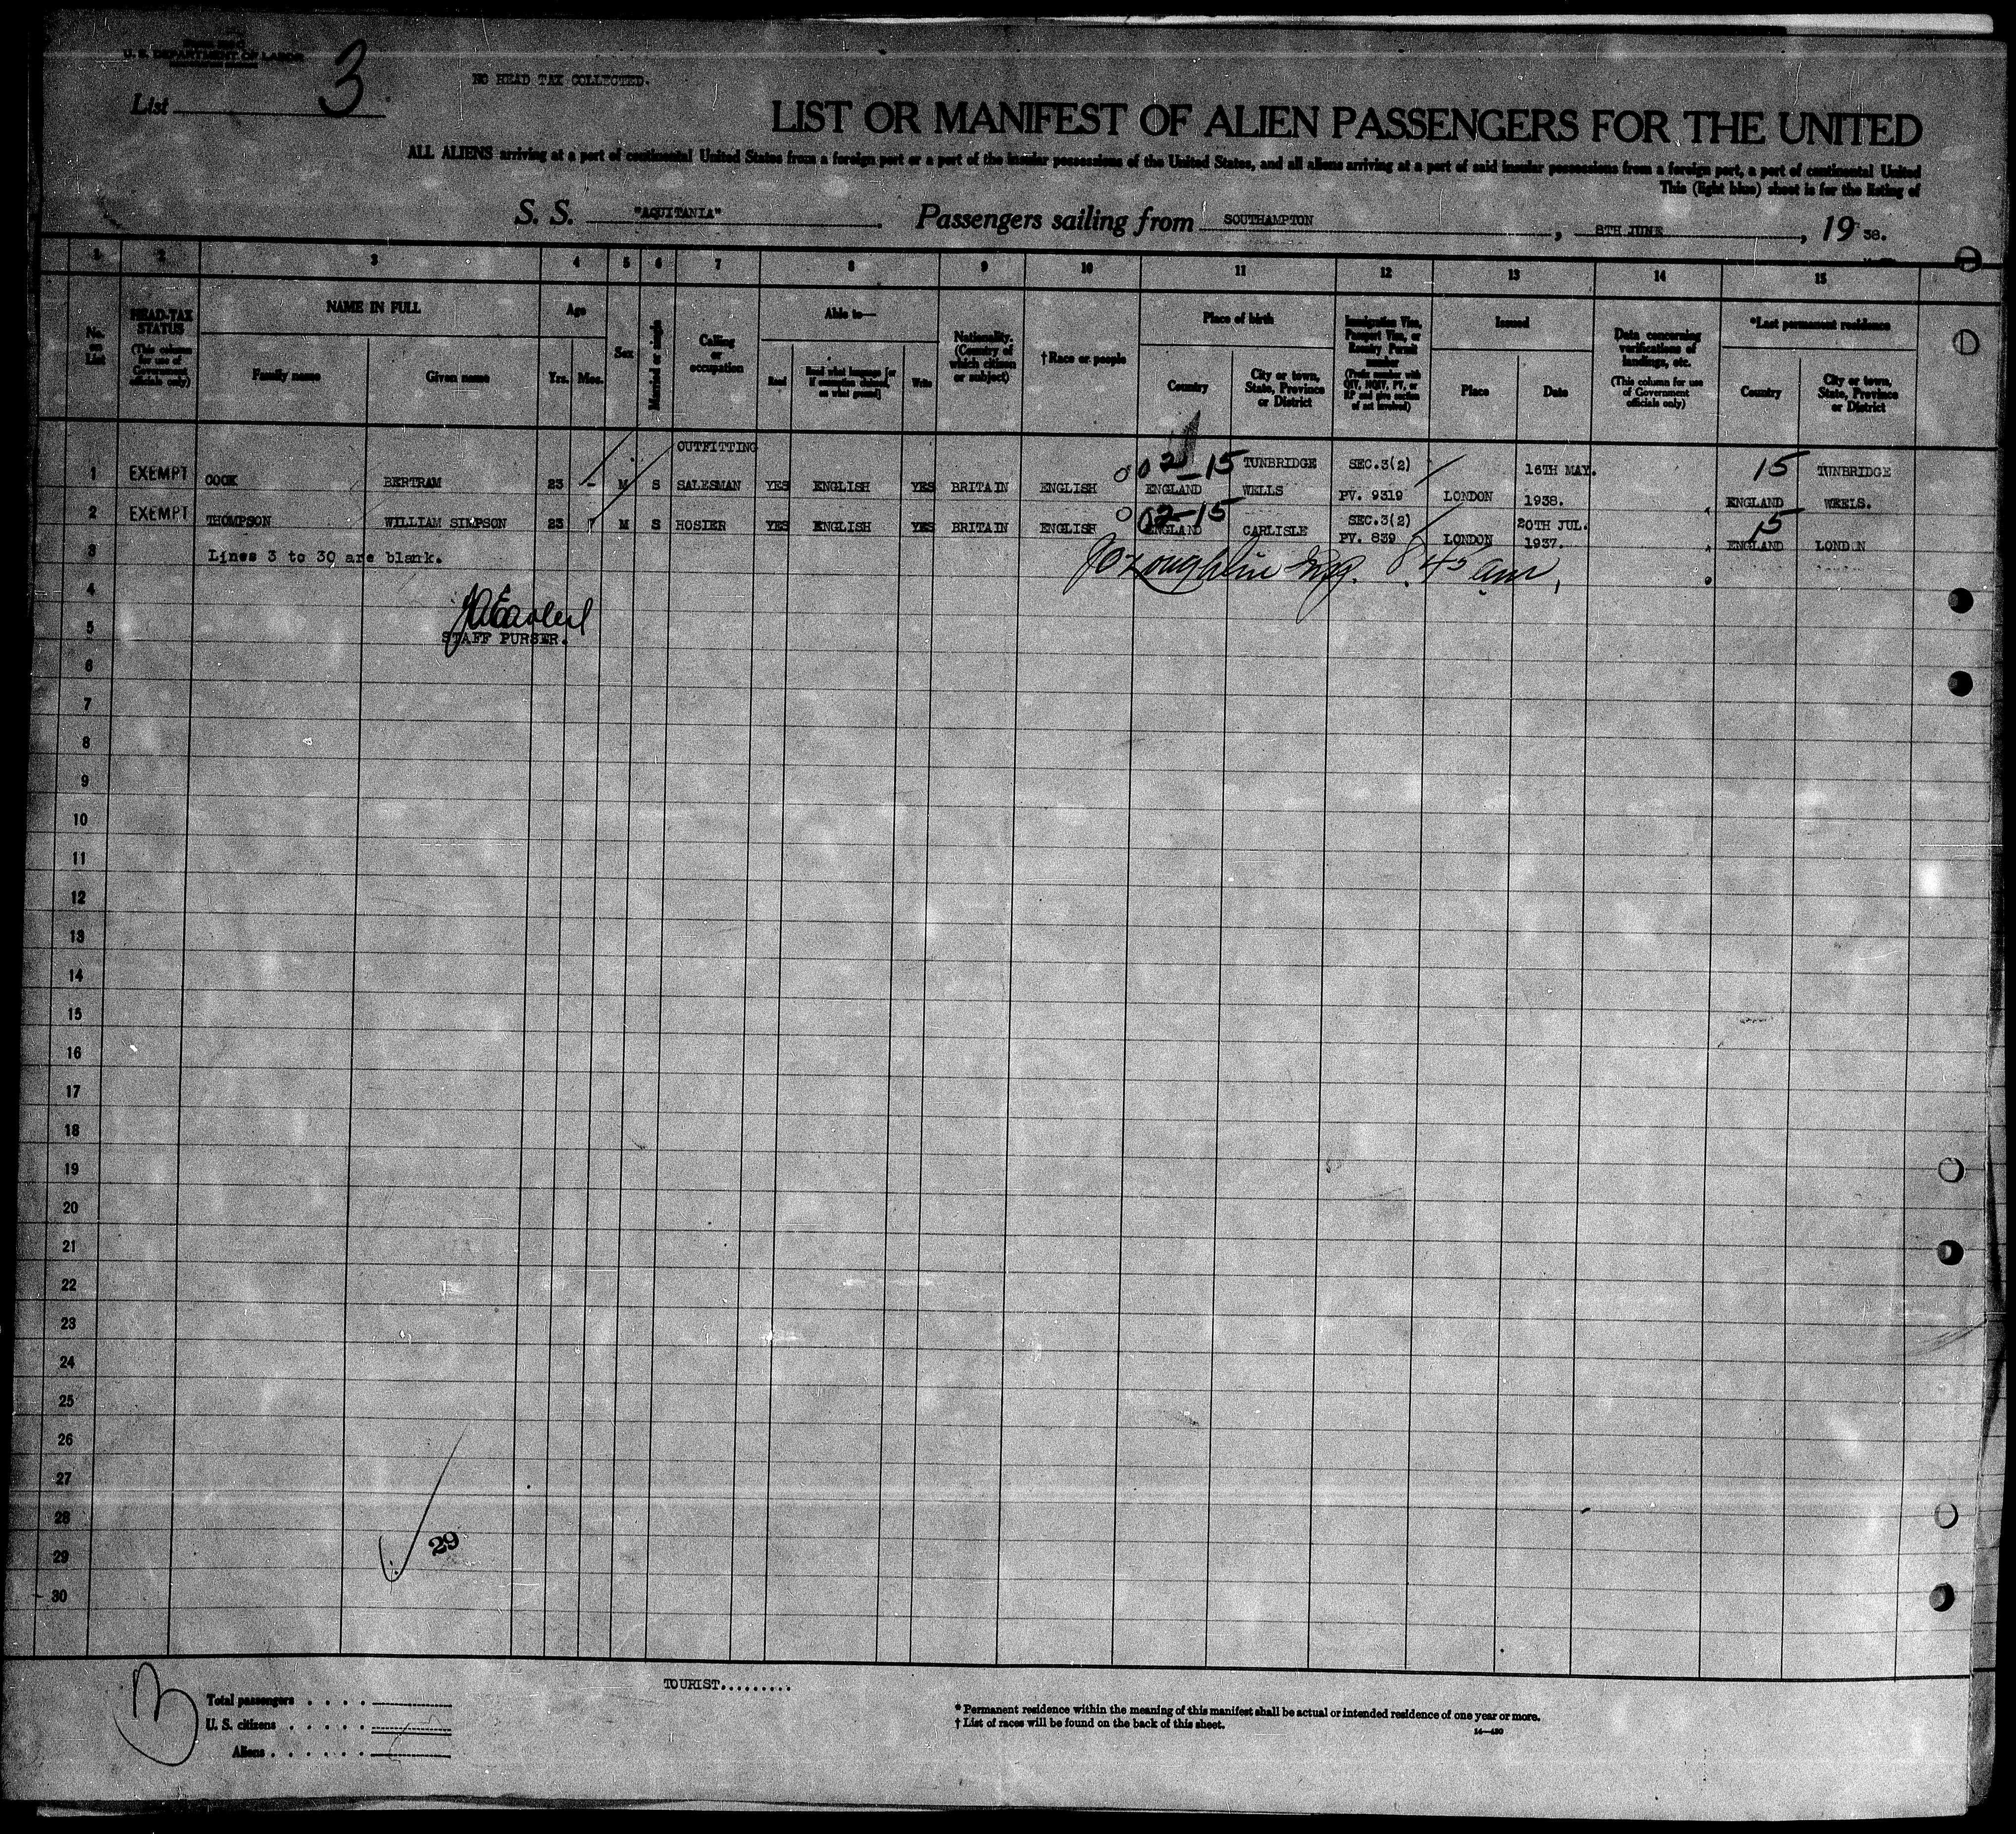 U. S. DEPARTMENT OF LABOR
List 3
NO HEAD TAX COLLECTED.
LIST OR MANIFEST OF ALIEN PASSENGERS FOR THE UNITED
ALL ALIENS arriving at a port of continental United States from a foreign port or a port of the insular possessions of the United States, and all aliens arriving at a port of said insular possessions from a foreign port, a port of continental United
This (light blue) sheet is for the listing of
S. S. "AQUITANIA" Passengers sailing from SOUTHAMPTON, 8TH JUNE, 19 38.
1 2 3 4 5 6 7 8 9 10 11 12 13 14 15
No. on List
HEAD-TAX STATUS (This column for use of Government officials only)
NAME IN FULL
Family name
Given name
Age
Yrs. Mos.
Sex
Married or single
Calling or occupation
Able to—
Read
Read what language [or if exemption claimed, on what ground]
Write
Nationality. (Country of which citizen or subject)
†Race or people
Place of birth
Country
City or town, State, Province or District
Immigration Visa, Passport Visa, or Reentry Permit number (Prefix number with QIV, NQIV, PV, or RP and give section of act involved)
Issued
Place
Date
Data concerning verifications of landings, etc. (This column for use of Government officials only)
*Last permanent residence
Country
City or town, State, Province or District
OUTFITTING
02-15 TUNBRIDGE SEC.3(2) 16TH MAY. 15 TUNBRIDGE
1 EXEMPT COOK BERTRAM 23 - M S SALESMAN YES ENGLISH YES BRITAIN ENGLISH ENGLAND WELLS PV. 9319 LONDON 1938. ENGLAND WEELS.
02-15 SEC.3(2) 20TH JUL. 15
2 EXEMPT THOMPSON WILLIAM SIMPSON 23 M S HOSIER YES ENGLISH YES BRITAIN ENGLISH ENGLAND CARLISLE PV. 839 LONDON 1937. ENGLAND LONDON
3 Lines 3 to 30 are blank.
4
5 STAFF PURSER.
6
7
8
9
10
11
12
13
14
15
16
17
18
19
20
21
22
23
24
25
26
27
28
29 29
30
TOURIST.........
Total passengers . . . .
U. S. citizens . . . . .
Aliens . . . . . .
* Permanent residence within the meaning of this manifest shall be actual or intended residence of one year or more.
† List of races will be found on the back of this sheet.
14—430